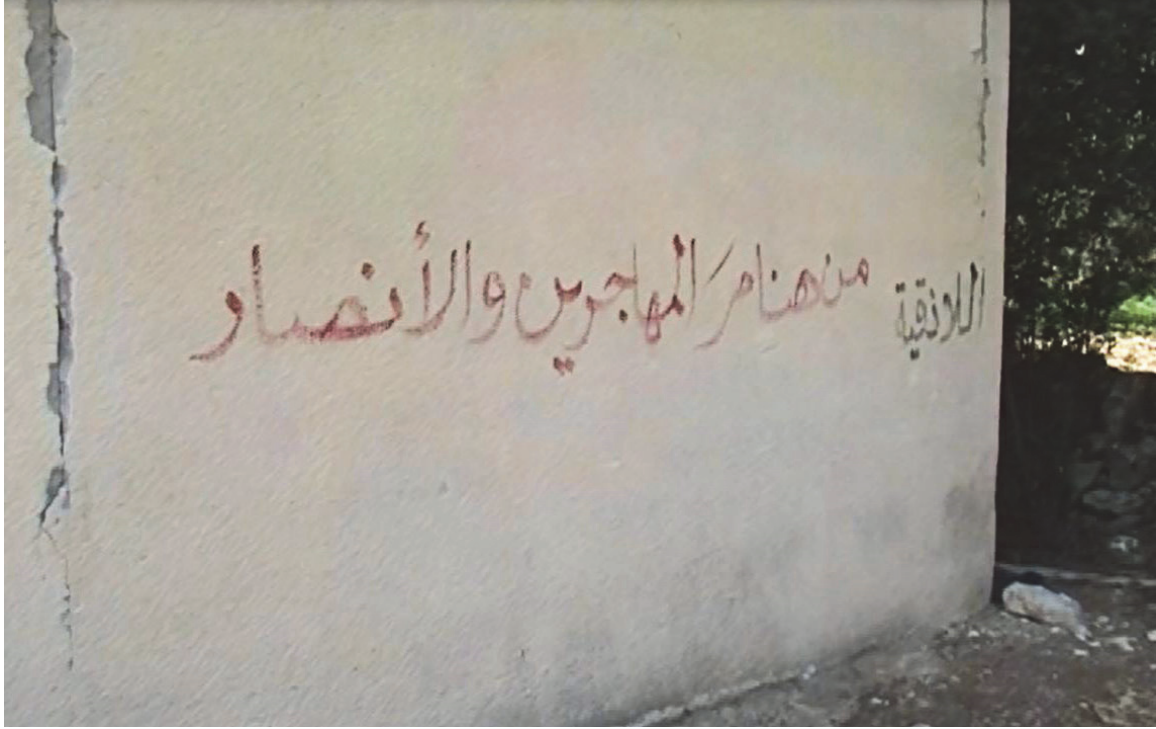 اللاذقية من هنا مرَ المهاجرين والأنصار